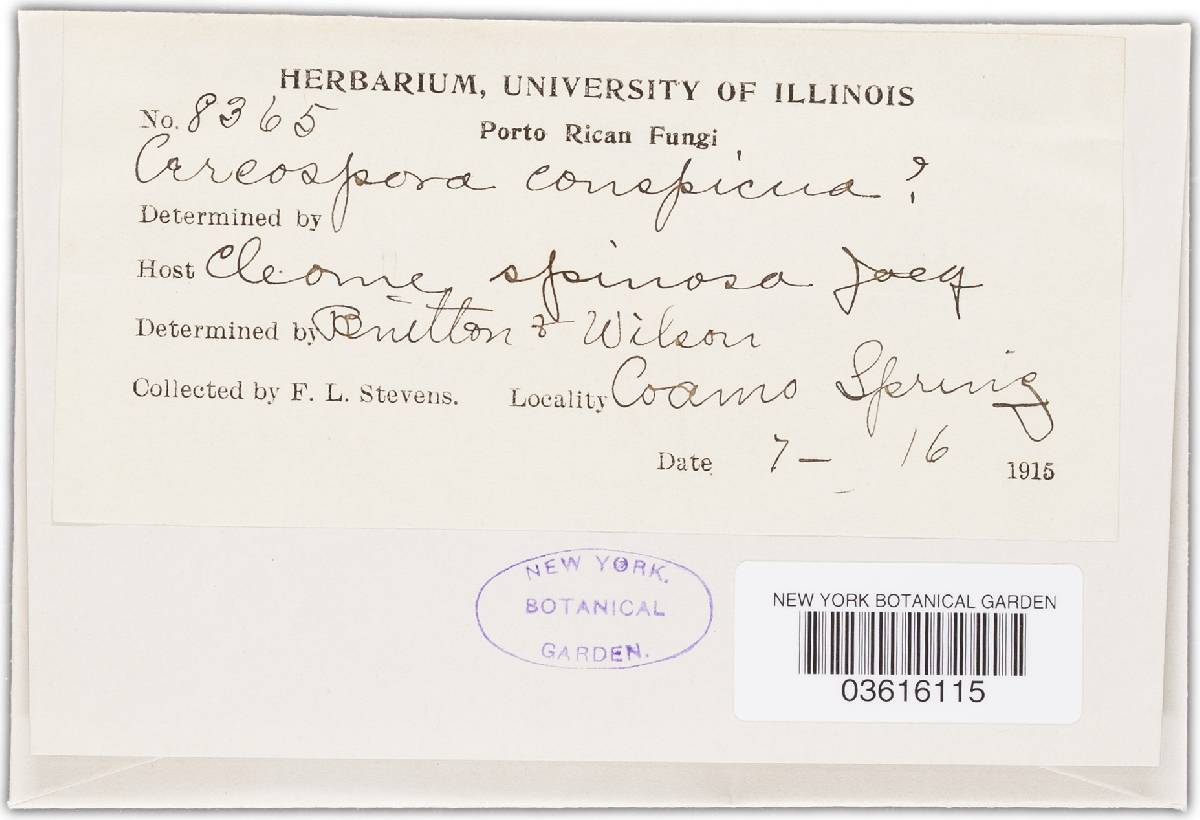 HERBARIUM, UNIVERSITY OF ILLINOIS
No. 8365
Porto Rican Fungi
Cercospora conspicua?
Determined by
Host Cleome spinosa Jacq
Determined by Britton & Wilson
Collected by F. L. Stevens. Locality Coamo Spring
Date 7 – 16 1915
NEW YORK.
BOTANICAL
GARDEN.
NEW YORK BOTANICAL GARDEN
03616115